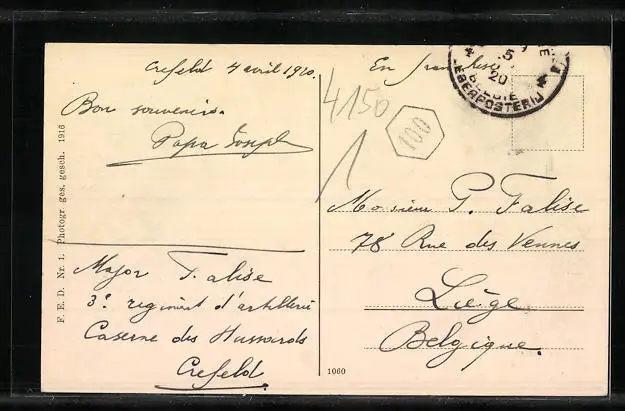 Crefeld 4 avril 1920.
Bon souvenir.
Papa Joseph
Major Falise
3e regiment d'artillerie
Caserne des Hussards
Crefeld
F. E. D. Nr. 1. Photogr. ges. gesch. 1916
En franchise
4150
1
100
5
20
BELGIE
LEGERPOSTERIJ
Monsieur P. Falise
78 Rue des Vennes
Liège
Belgique.
1060